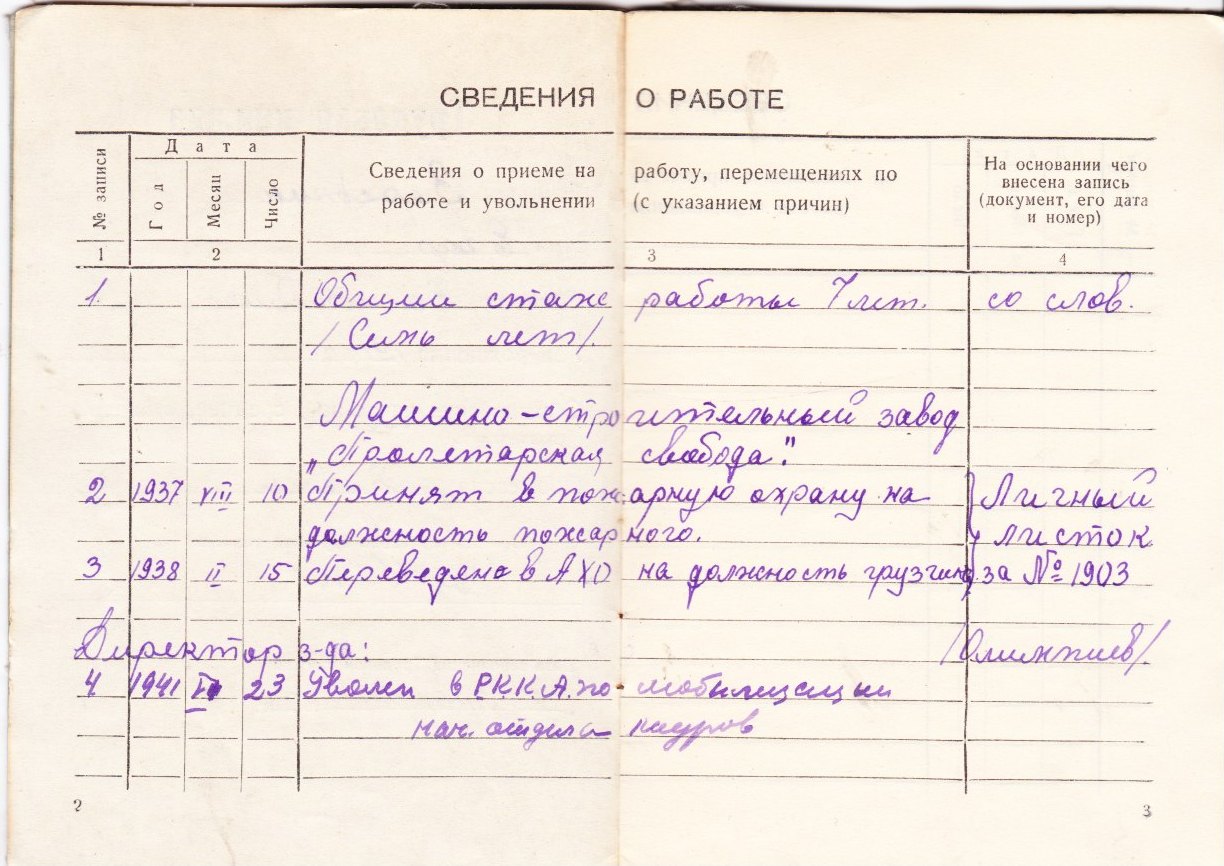 СВЕДЕНИЯ О РАБОТЕ
№ записи
Дата
Год
Месяц
Число
Сведения о приеме на работу, перемещениях по
работе и увольнении (с указанием причин)
На основании чего
внесена запись
(документ, его дата
и номер)
1 2 3 4
1. Общий стаж работы 7 лет. со слов.
/Семь лет/.
Машино-строительный завод
„Пролетарская свобода".
2 1937 XIII 10 Принят в пожарную охрану на Личный
должность пожарного. листок
3 1938 II 15 Переведен в АХО на должность грузчика за № 1903
Директор з-да: /Олимпиев/
4 1941 23 Уволен в Р.К.К.А. по мобилизации
нач. отдела кадров
2
3